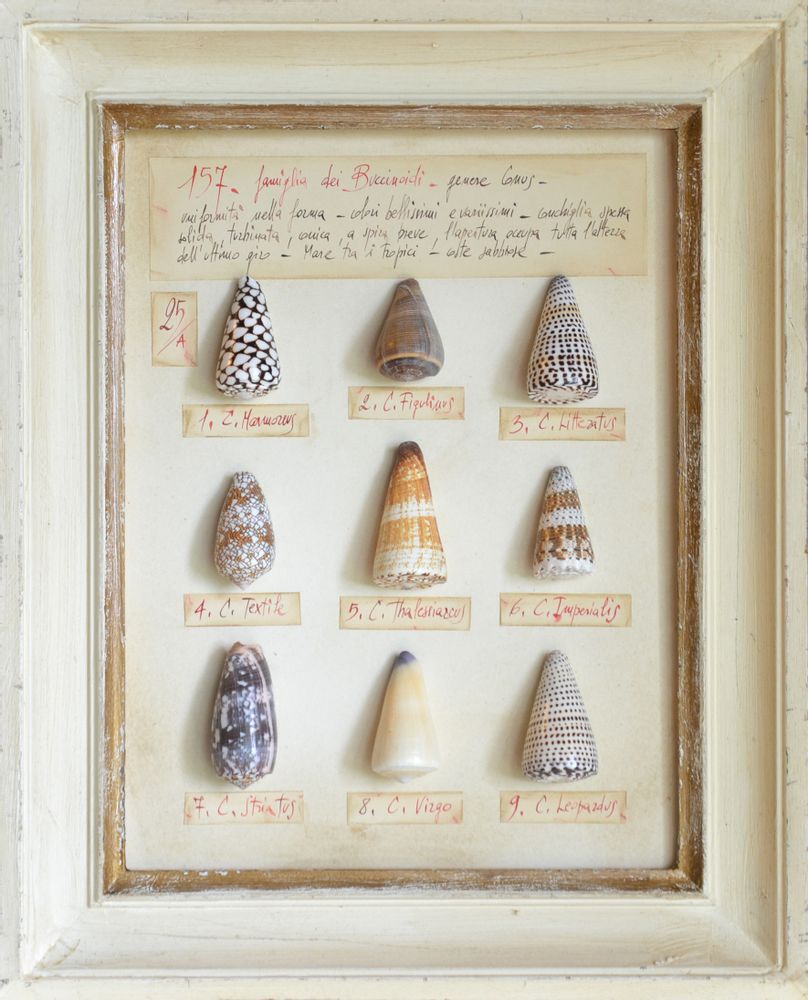 157. famiglia dei Buccinoidi - genere Conus -
uniformità nella forma - colori bellissimi e variissimi - conchiglia spessa
solida, turbinata, conica, a spira breve, l'apertura occupa tutta l'altezza
dell'ultimo giro - Mare tra i tropici - coste sabbiose -
25/A
1. C. Marmoreus
2. C. Figulinus
3. C. Litteratus
4. C. Textile
5. C. Thalassiarcus
6. C. Imperialis
7. C. Striatus
8. C. Virgo
9. C. Leopardus